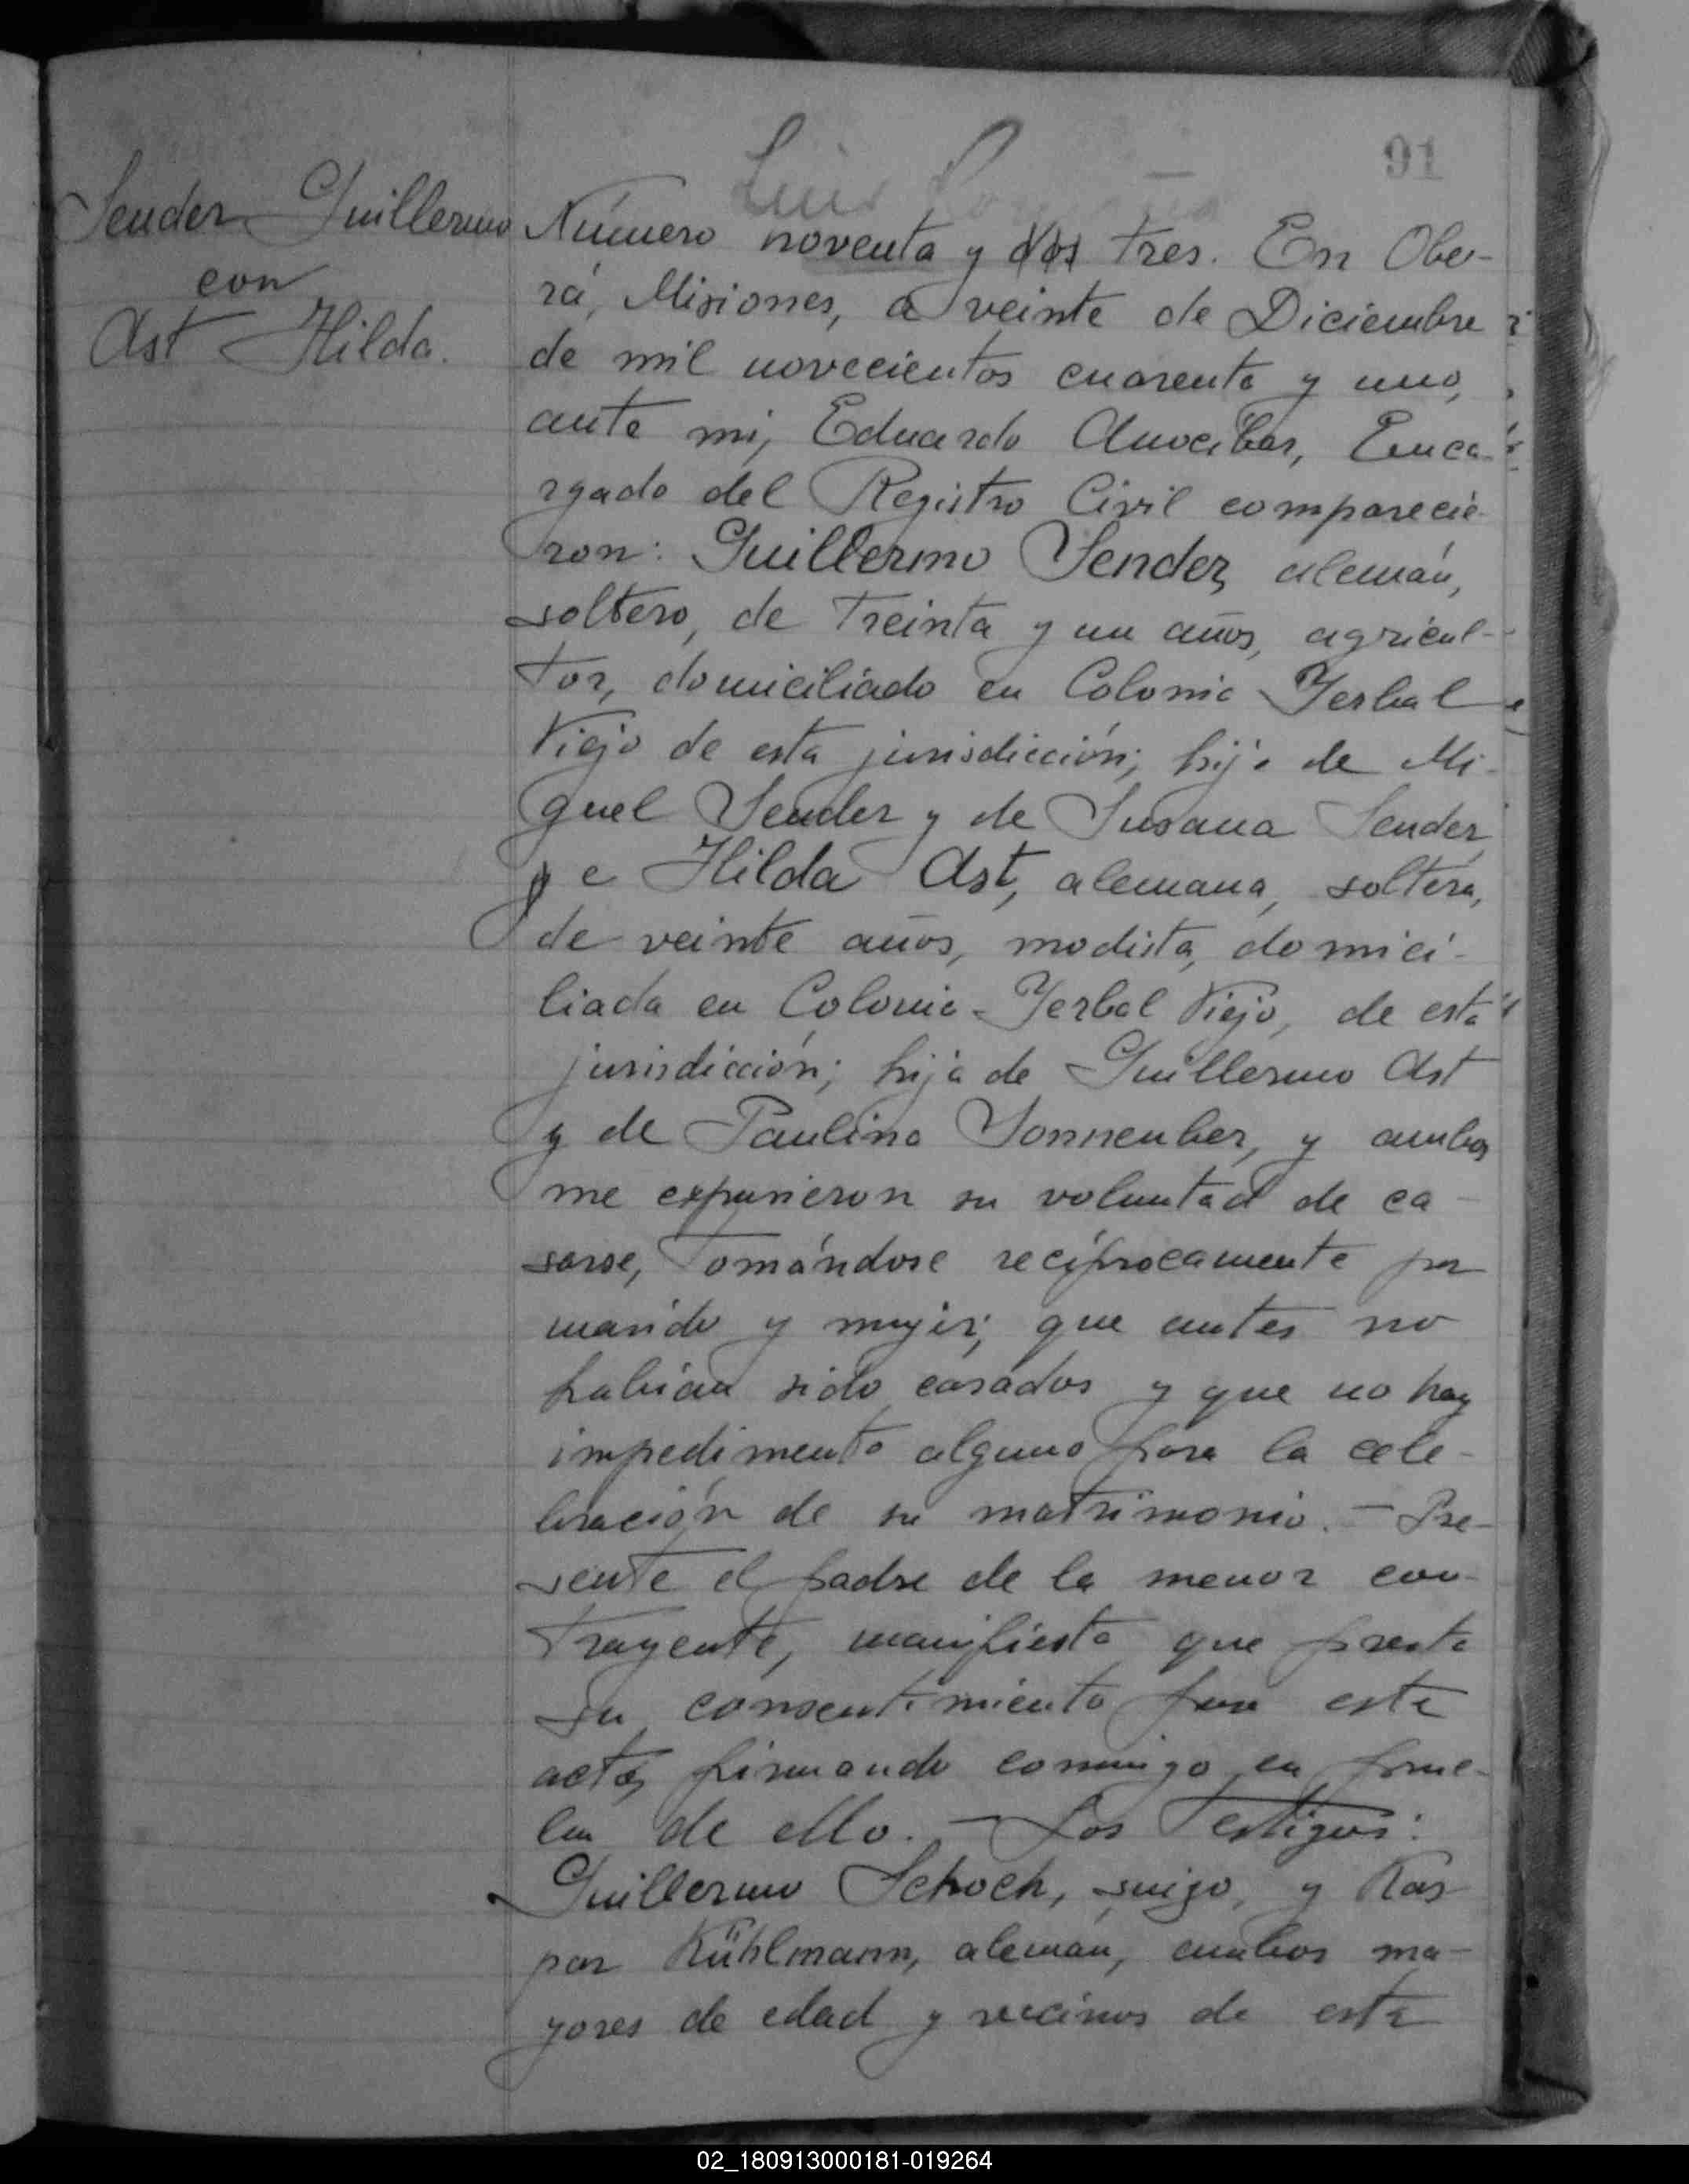 91
Sender Guillermo
con
Ast Hilda.
Número noventa y dos tres. En Obe-
rá, Misiones, a veinte de Diciembre
de mil novecientos cuarenta y uno,
ante mi, Eduardo Enca-
rgado del Registro Civil comparecie-
ron: Guillermo Sender, alemán,
soltero, de treinta y un años, agricul-
tor, domiciliado en Colonia Yerbal
Viejo de esta jurisdicción; hijo de Mi-
guel Sender y de Susana Sender
y e Hilda Ast, alemana, soltera,
de veinte años, modista, domici-
liada en Colonia Yerbal Viejo, de esta
jurisdicción; hija de Guillermo Ast
y de Paulina Sonnenber, y ambos
me expusieron su voluntad de ca-
sarse, tomándose recíprocamente por
marido y mujer; que antes no
habían sido casados y que no hay
impedimento alguno para la cele-
bración de su matrimonio. - Pre-
sente el padre de la menor con-
trayente, manifiesta que presta
su consentimiento para este
acto, firmando conmigo en prue-
ba de ello. - Los testigos:
Guillermo Schoch, suizo, y Kas
par Kühlmann, alemán, ambos ma-
yores de edad y vecinos de esta
02_180913000181-019264